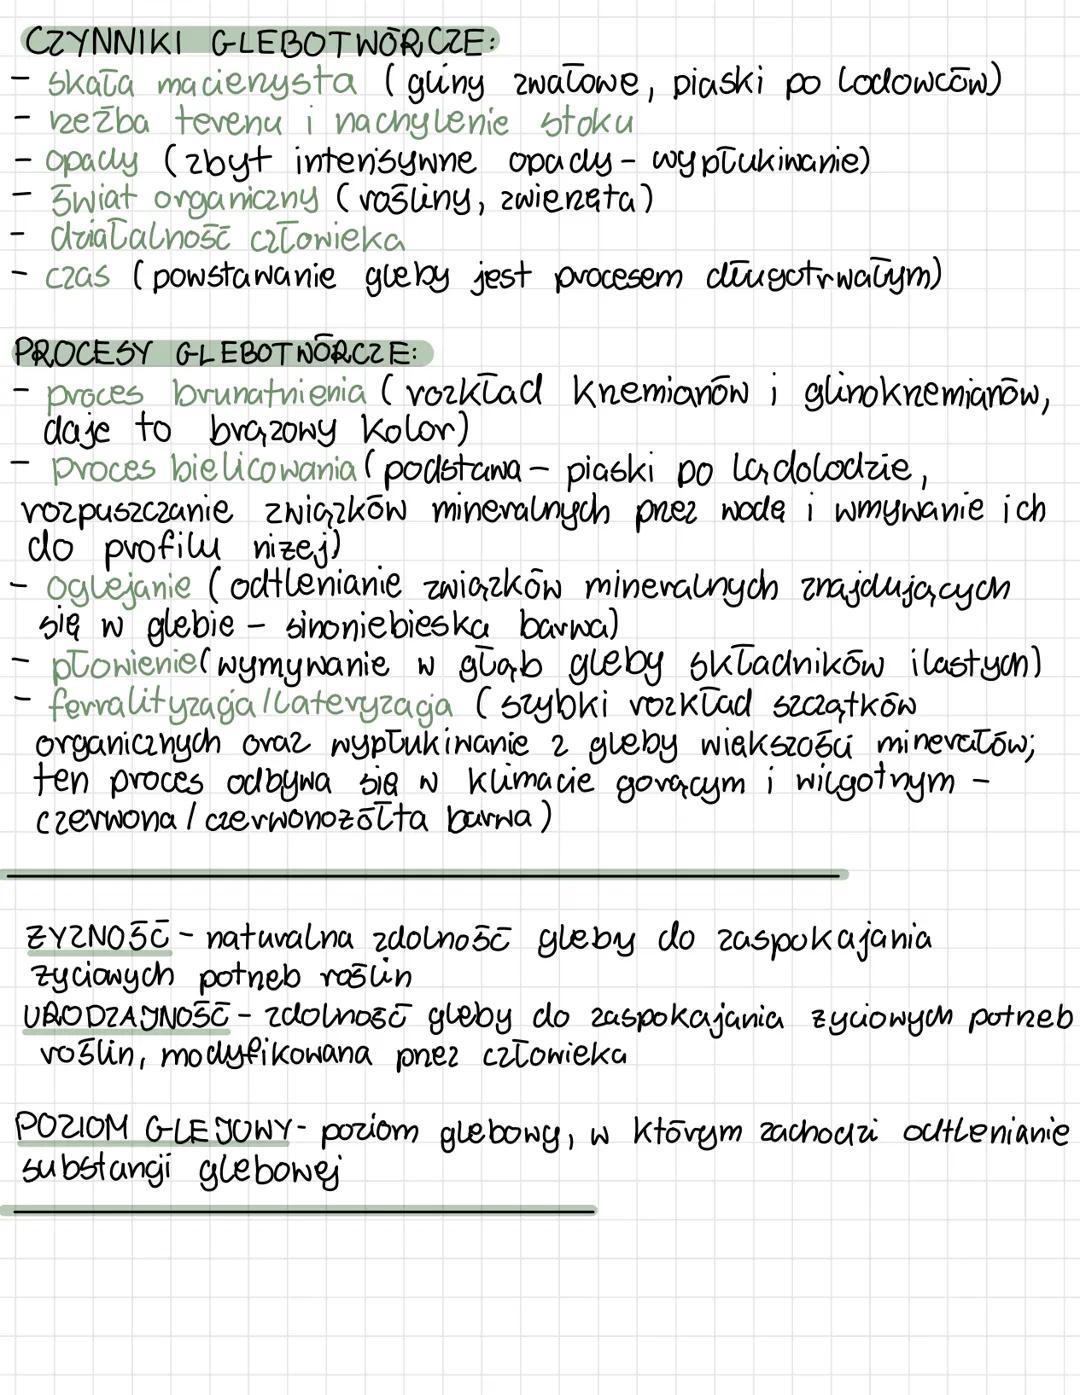 CZYNNIKI GLEBOTWÓRCZE:
- skała macierzysta (gliny zwałowe, piaski po lodowców)
- rzeźba terenu i nachylenie stoku
- opady (zbyt intensywne opady - wypłukiwanie)
- świat organiczny (rośliny, zwierzęta)
- działalność człowieka
- czas (powstawanie gleby jest procesem długotrwałym)
PROCESY GLEBOTWÓRCZE:
- proces brunatnienia (rozkład krzemianów i glinokrzemianów,
daje to brązowy kolor)
- proces bielicowania (podstawa - piaski po lądolodzie,
rozpuszczanie związków mineralnych przez wodę i wmywanie ich
do profilu niżej)
- oglejanie (odtlenianie związków mineralnych znajdujących
się w glebie - sinoniebieska barwa)
- płowienie (wymywanie w głąb gleby składników ilastych)
- ferralityzacja/lateryzacja (szybki rozkład szczątków
organicznych oraz wypłukiwanie z gleby większości minerałów;
ten proces odbywa się w klimacie gorącym i wilgotnym -
czerwona/czerwonożółta barwa)
ŻYZNOŚĆ - naturalna zdolność gleby do zaspokajania
życiowych potrzeb roślin
URODZAJNOŚĆ - zdolność gleby do zaspokajania życiowych potrzeb
roślin, modyfikowana przez człowieka
POZIOM GLEJOWY - poziom glebowy, w którym zachodzi odtlenianie
substancji glebowej